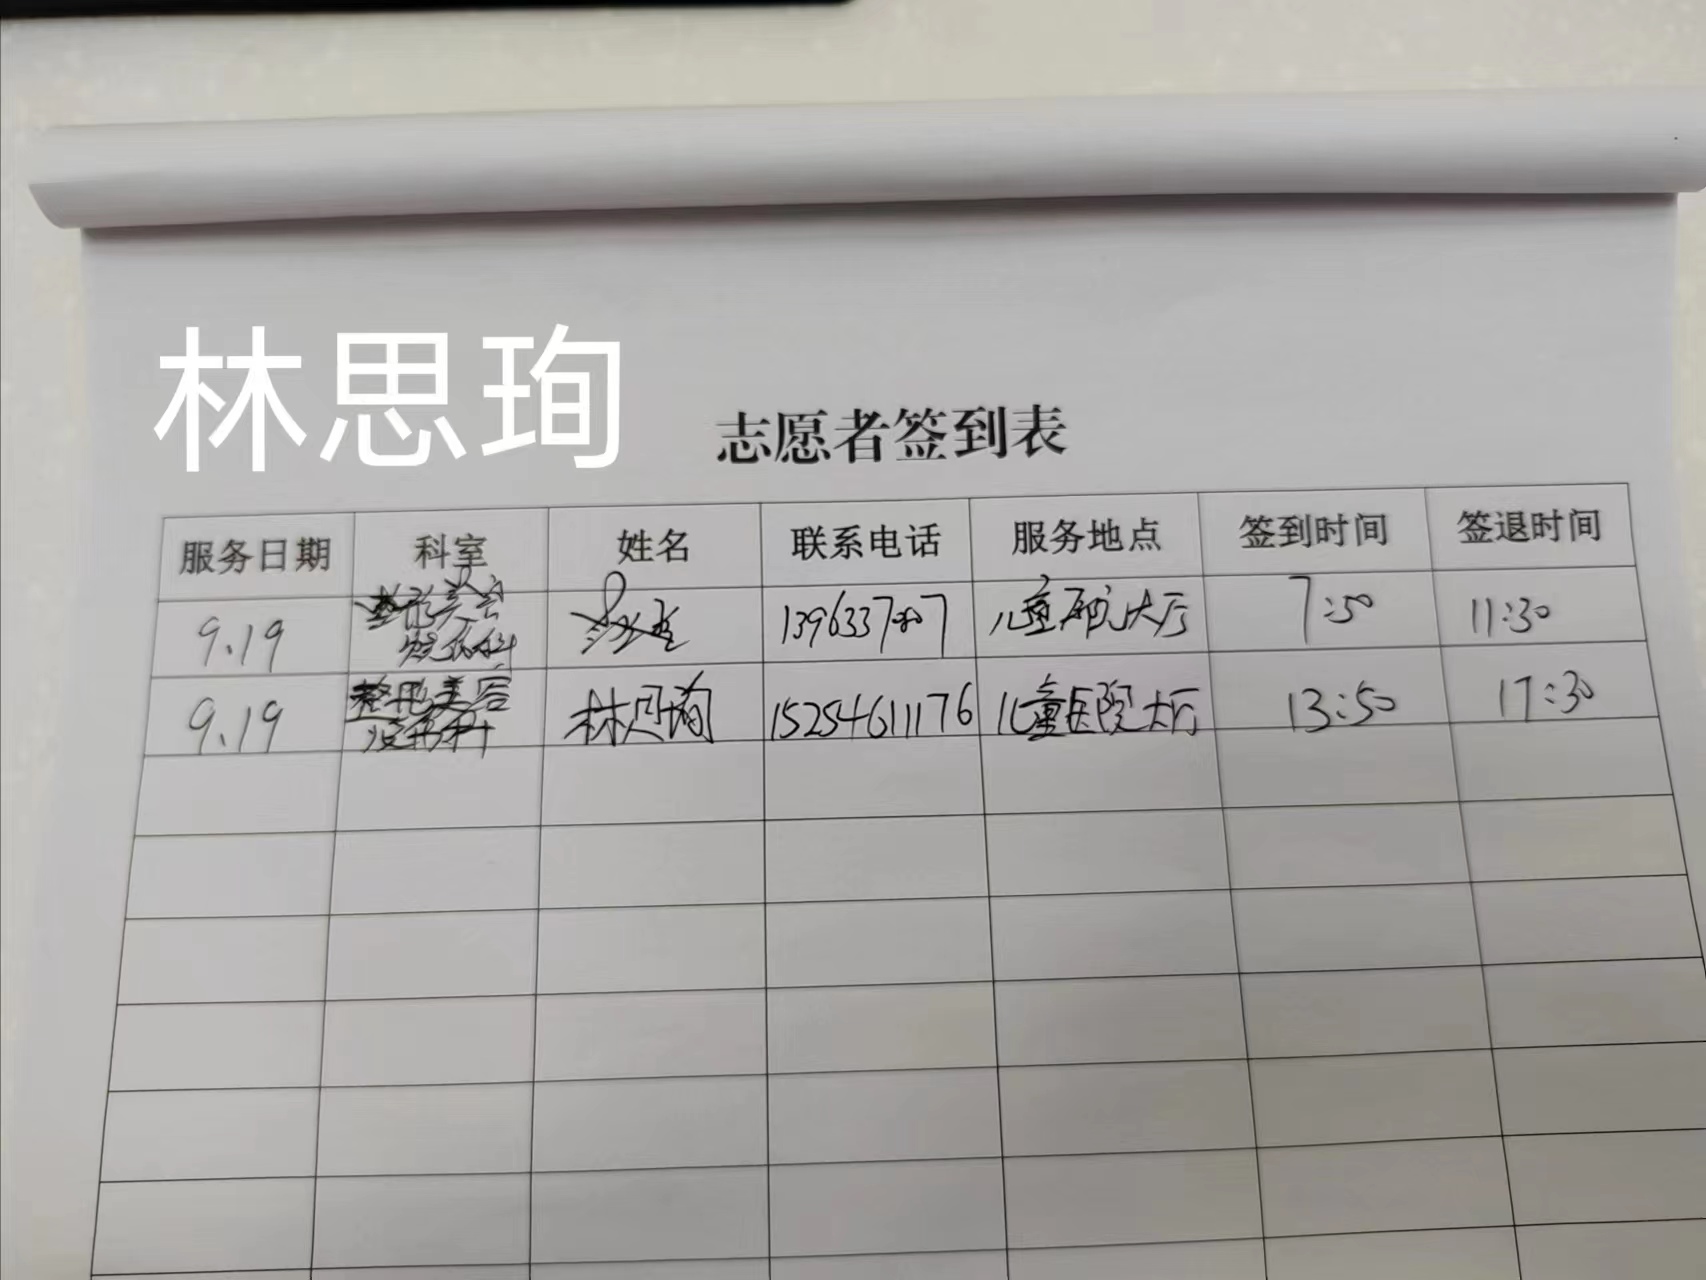 林思珣
志愿者签到表
服务日期 科室 姓名 联系电话 服务地点 签到时间 签退时间
9.19 整形美容 儿童医院大厅 7:50 11:30
烧伤科
9.19 整形美容 林思珣 15254611176 儿童医院大厅 13:50 17:30
烧伤科